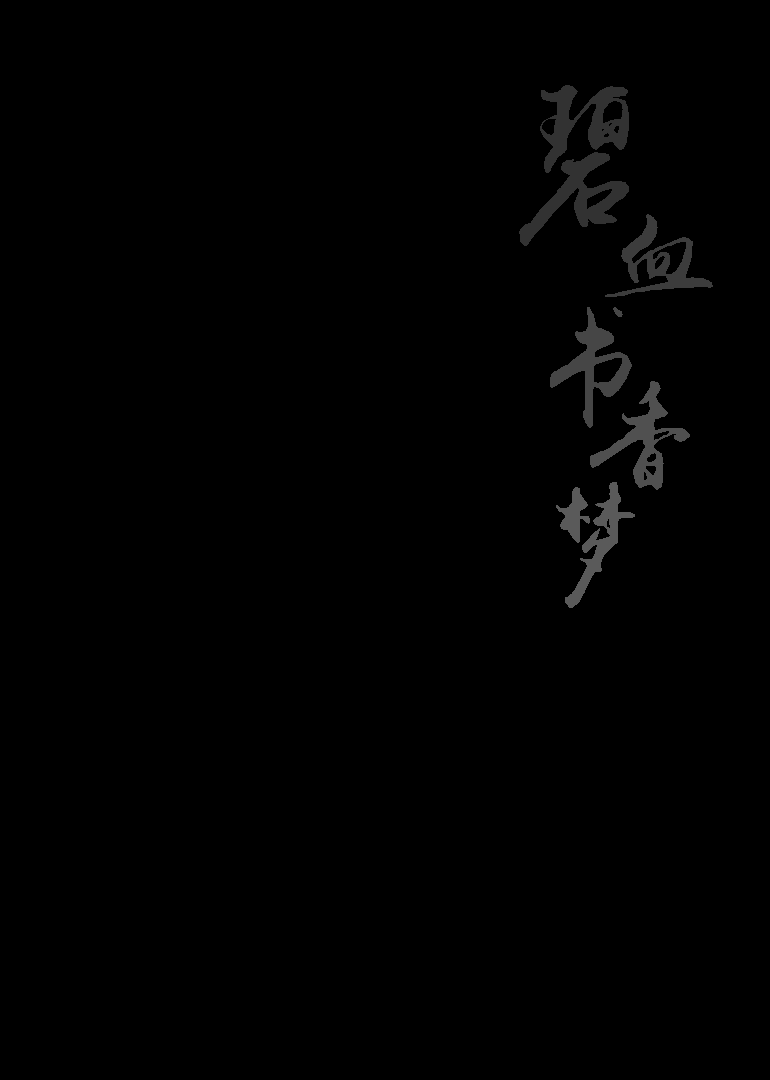 碧血书香梦